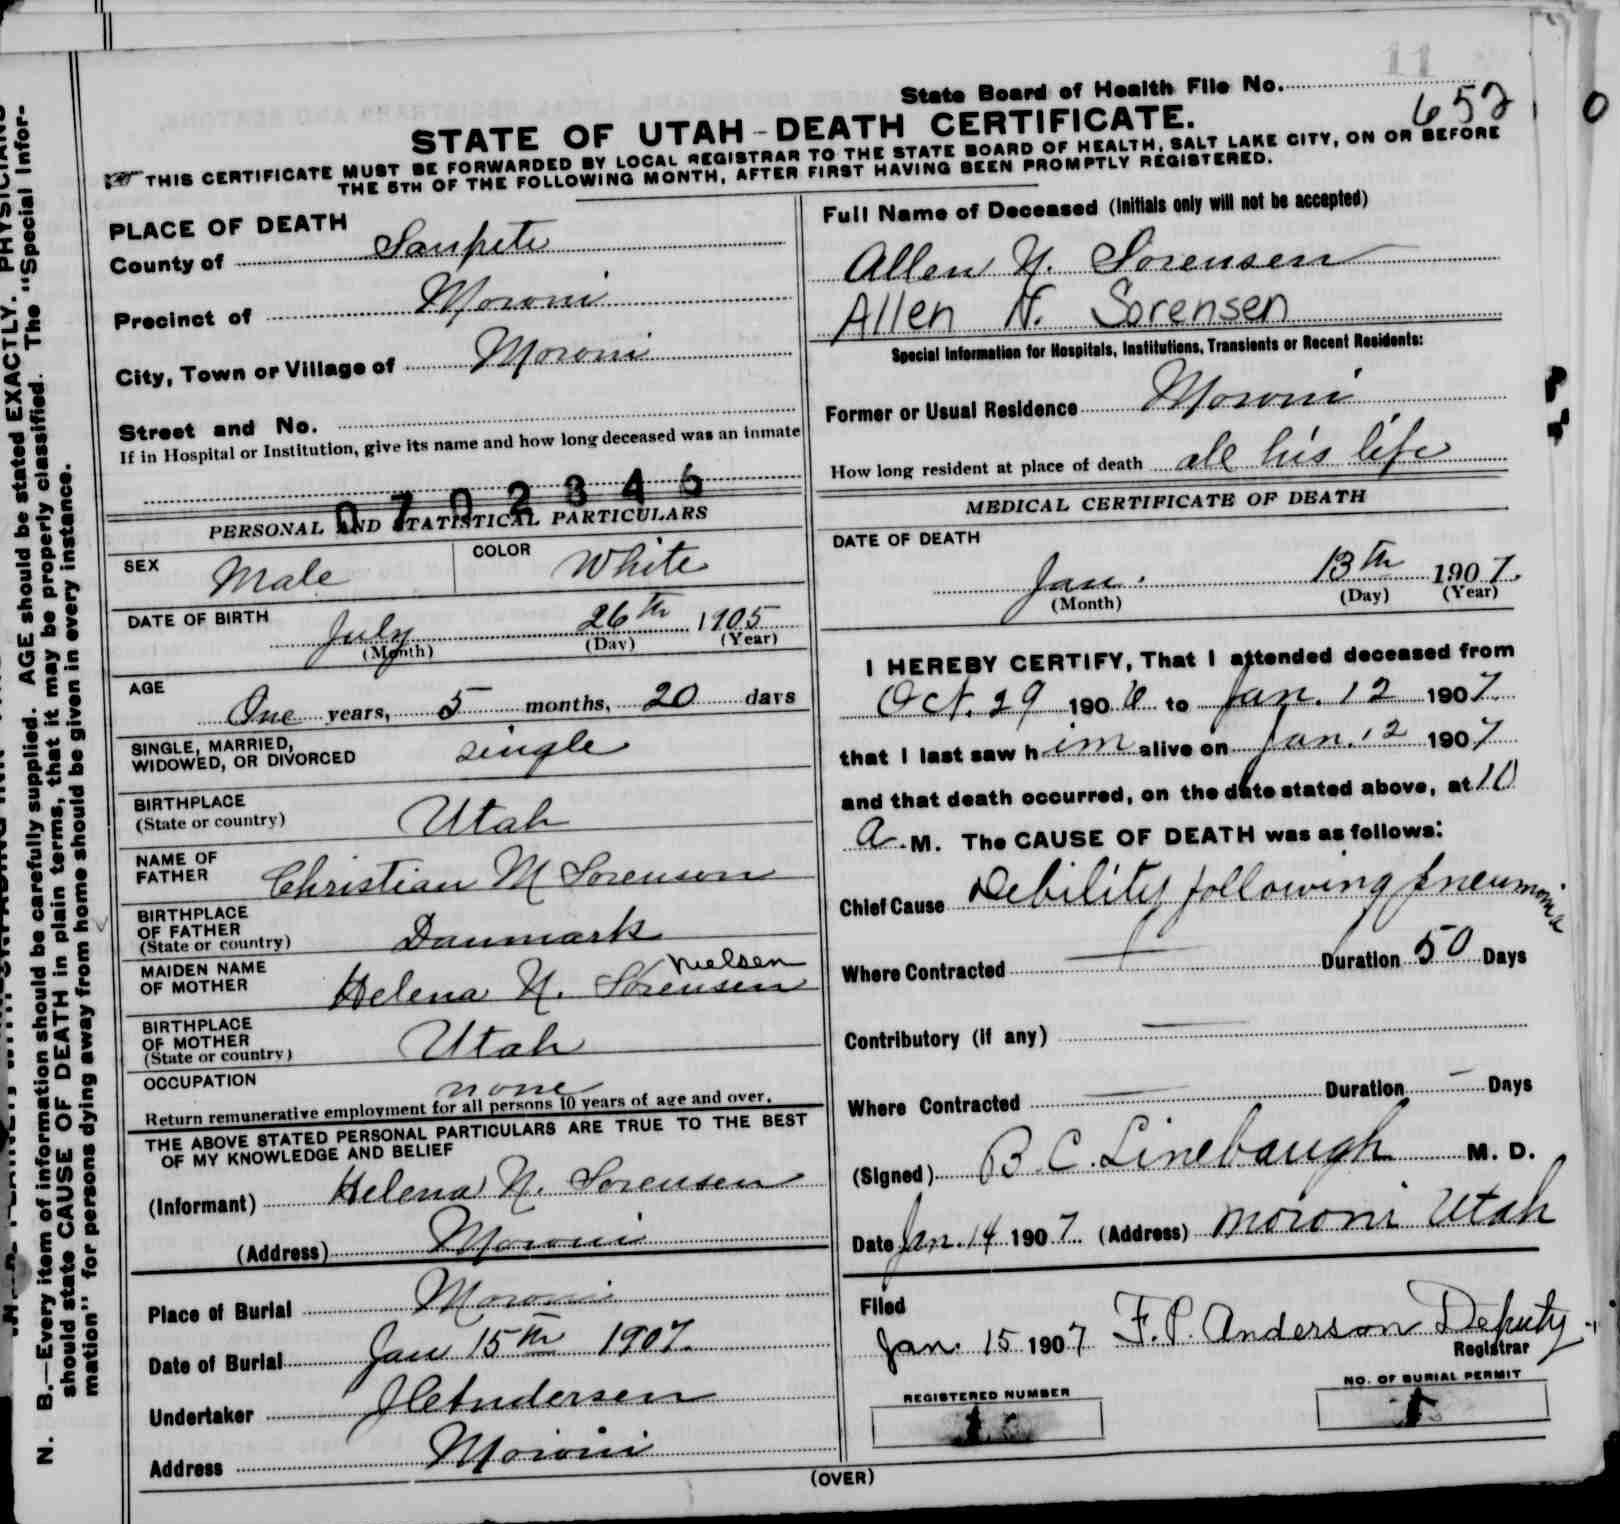 11
State Board of Health File No. 652
0
STATE OF UTAH - DEATH CERTIFICATE.
THIS CERTIFICATE MUST BE FORWARDED BY LOCAL REGISTRAR TO THE STATE BOARD OF HEALTH, SALT LAKE CITY, ON OR BEFORE
THE 5TH OF THE FOLLOWING MONTH, AFTER FIRST HAVING BEEN PROMPTLY REGISTERED.
PLACE OF DEATH
County of Sanpete
Precinct of Moroni
City, Town or Village of Moroni
Street and No.
If in Hospital or Institution, give its name and how long deceased was an inmate
0702346
PERSONAL AND STATISTICAL PARTICULARS
SEX Male COLOR White
DATE OF BIRTH July 26th 1905
(Month) (Day) (Year)
AGE
One years, 5 months, 20 days
SINGLE, MARRIED,
WIDOWED, OR DIVORCED single
BIRTHPLACE
(State or country) Utah
NAME OF
FATHER Christian M Sorenson
BIRTHPLACE
OF FATHER
(State or country) Danmark
MAIDEN NAME
OF MOTHER Helena N. Sorensen Nielsen
BIRTHPLACE
OF MOTHER
(State or country) Utah
OCCUPATION none
Return remunerative employment for all persons 10 years of age and over.
THE ABOVE STATED PERSONAL PARTICULARS ARE TRUE TO THE BEST
OF MY KNOWLEDGE AND BELIEF
(Informant) Helena N. Sorensen
(Address) Moroni
Place of Burial Moroni
Date of Burial Jan 15th 1907.
Undertaker Andersen
Address Moroni
Full Name of Deceased (Initials only will not be accepted)
Allen N. Sorensen
Allen N. Sorensen
Special Information for Hospitals, Institutions, Transients or Recent Residents:
Former or Usual Residence Moroni
How long resident at place of death all his life
MEDICAL CERTIFICATE OF DEATH
DATE OF DEATH
Jan. 13th 1907.
(Month) (Day) (Year)
I HEREBY CERTIFY, That I attended deceased from
Oct. 29 1906 to Jan. 12 1907
that I last saw him alive on Jan. 12 1907
and that death occurred, on the date stated above, at 10
a. M. The CAUSE OF DEATH was as follows:
Chief Cause Debility following pneumonia
Where Contracted Duration 50 Days
Contributory (if any)
Where Contracted Duration Days
(Signed) B. C. Linebaugh M. D.
Date Jan. 14 1907. (Address) Moroni Utah
Filed
Jan. 15 1907 F. P. Anderson Deputy
Registrar
REGISTERED NUMBER
1
NO. OF BURIAL PERMIT
1
(OVER)
N. B.—Every item of information should be carefully supplied. AGE should be stated EXACTLY. PHYSICIANS
should state CAUSE OF DEATH in plain terms, that it may be properly classified. The "Special Infor-
mation" for persons dying away from home should be given in every instance.